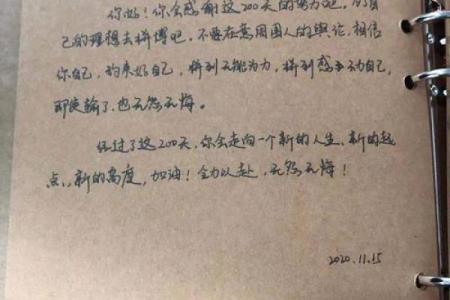 你好！你会感谢这200天的努力吧，为自
己的理想去拼博吧，不要在意周围人的舆论，相信
你自己，约束好自己，拼到无能为力，拼到感动自己，
即使输了，也无怨无悔。
经过了这200天，你会走向一个新的人生，新的起
点，新的高度，加油！全力以赴，无怨无悔！
2020.11.15